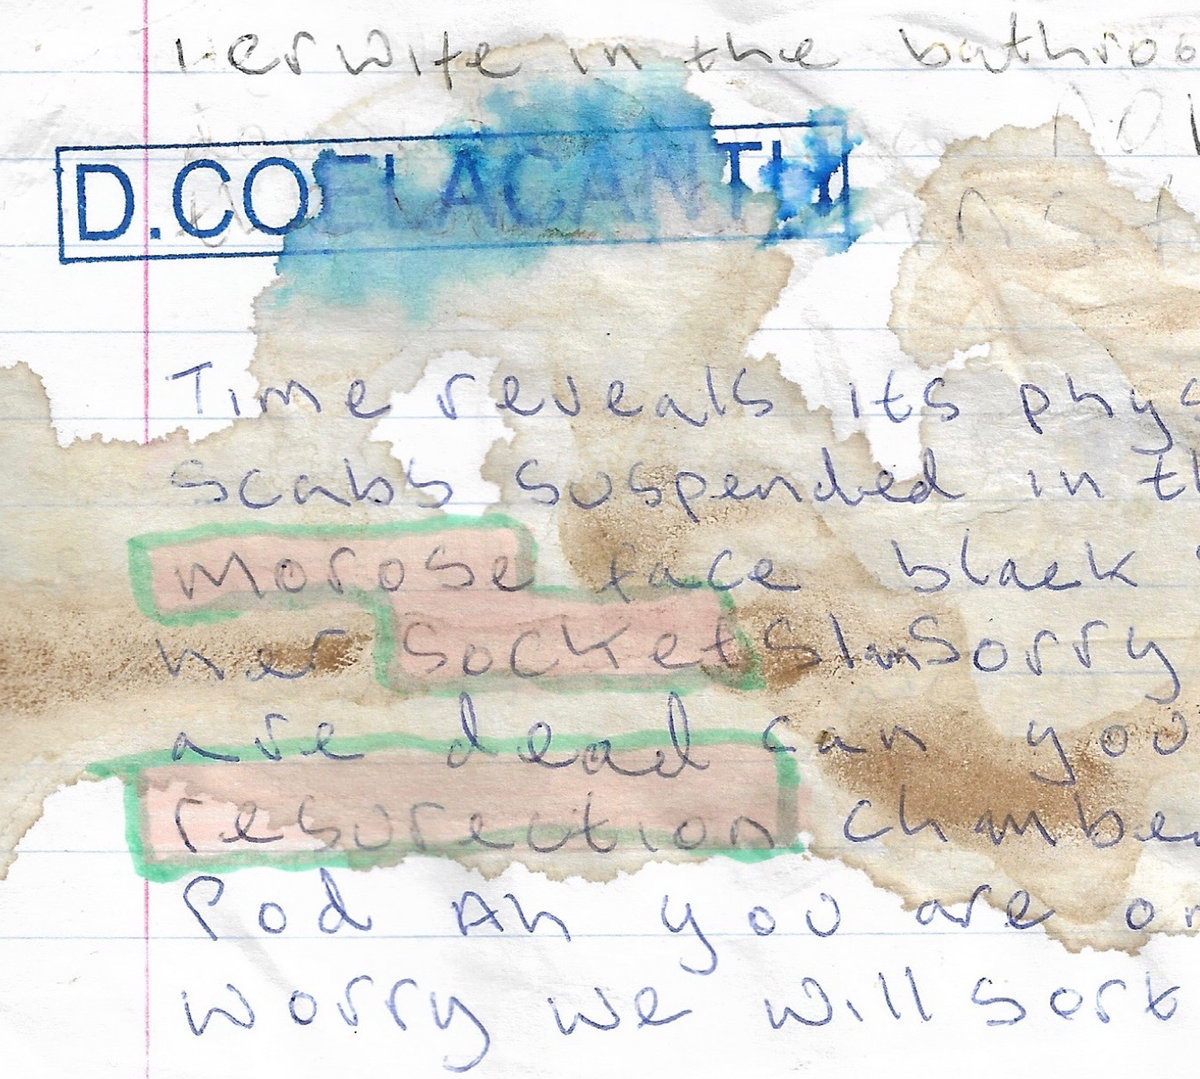 Her wife in the bathroo
D.COELACANTH
Time reveals its phys
scabs suspended in th
morose face black
her sockets Im Sorry
are dead can you
resurection chambe
Pod Ah you are on
worry we will sort